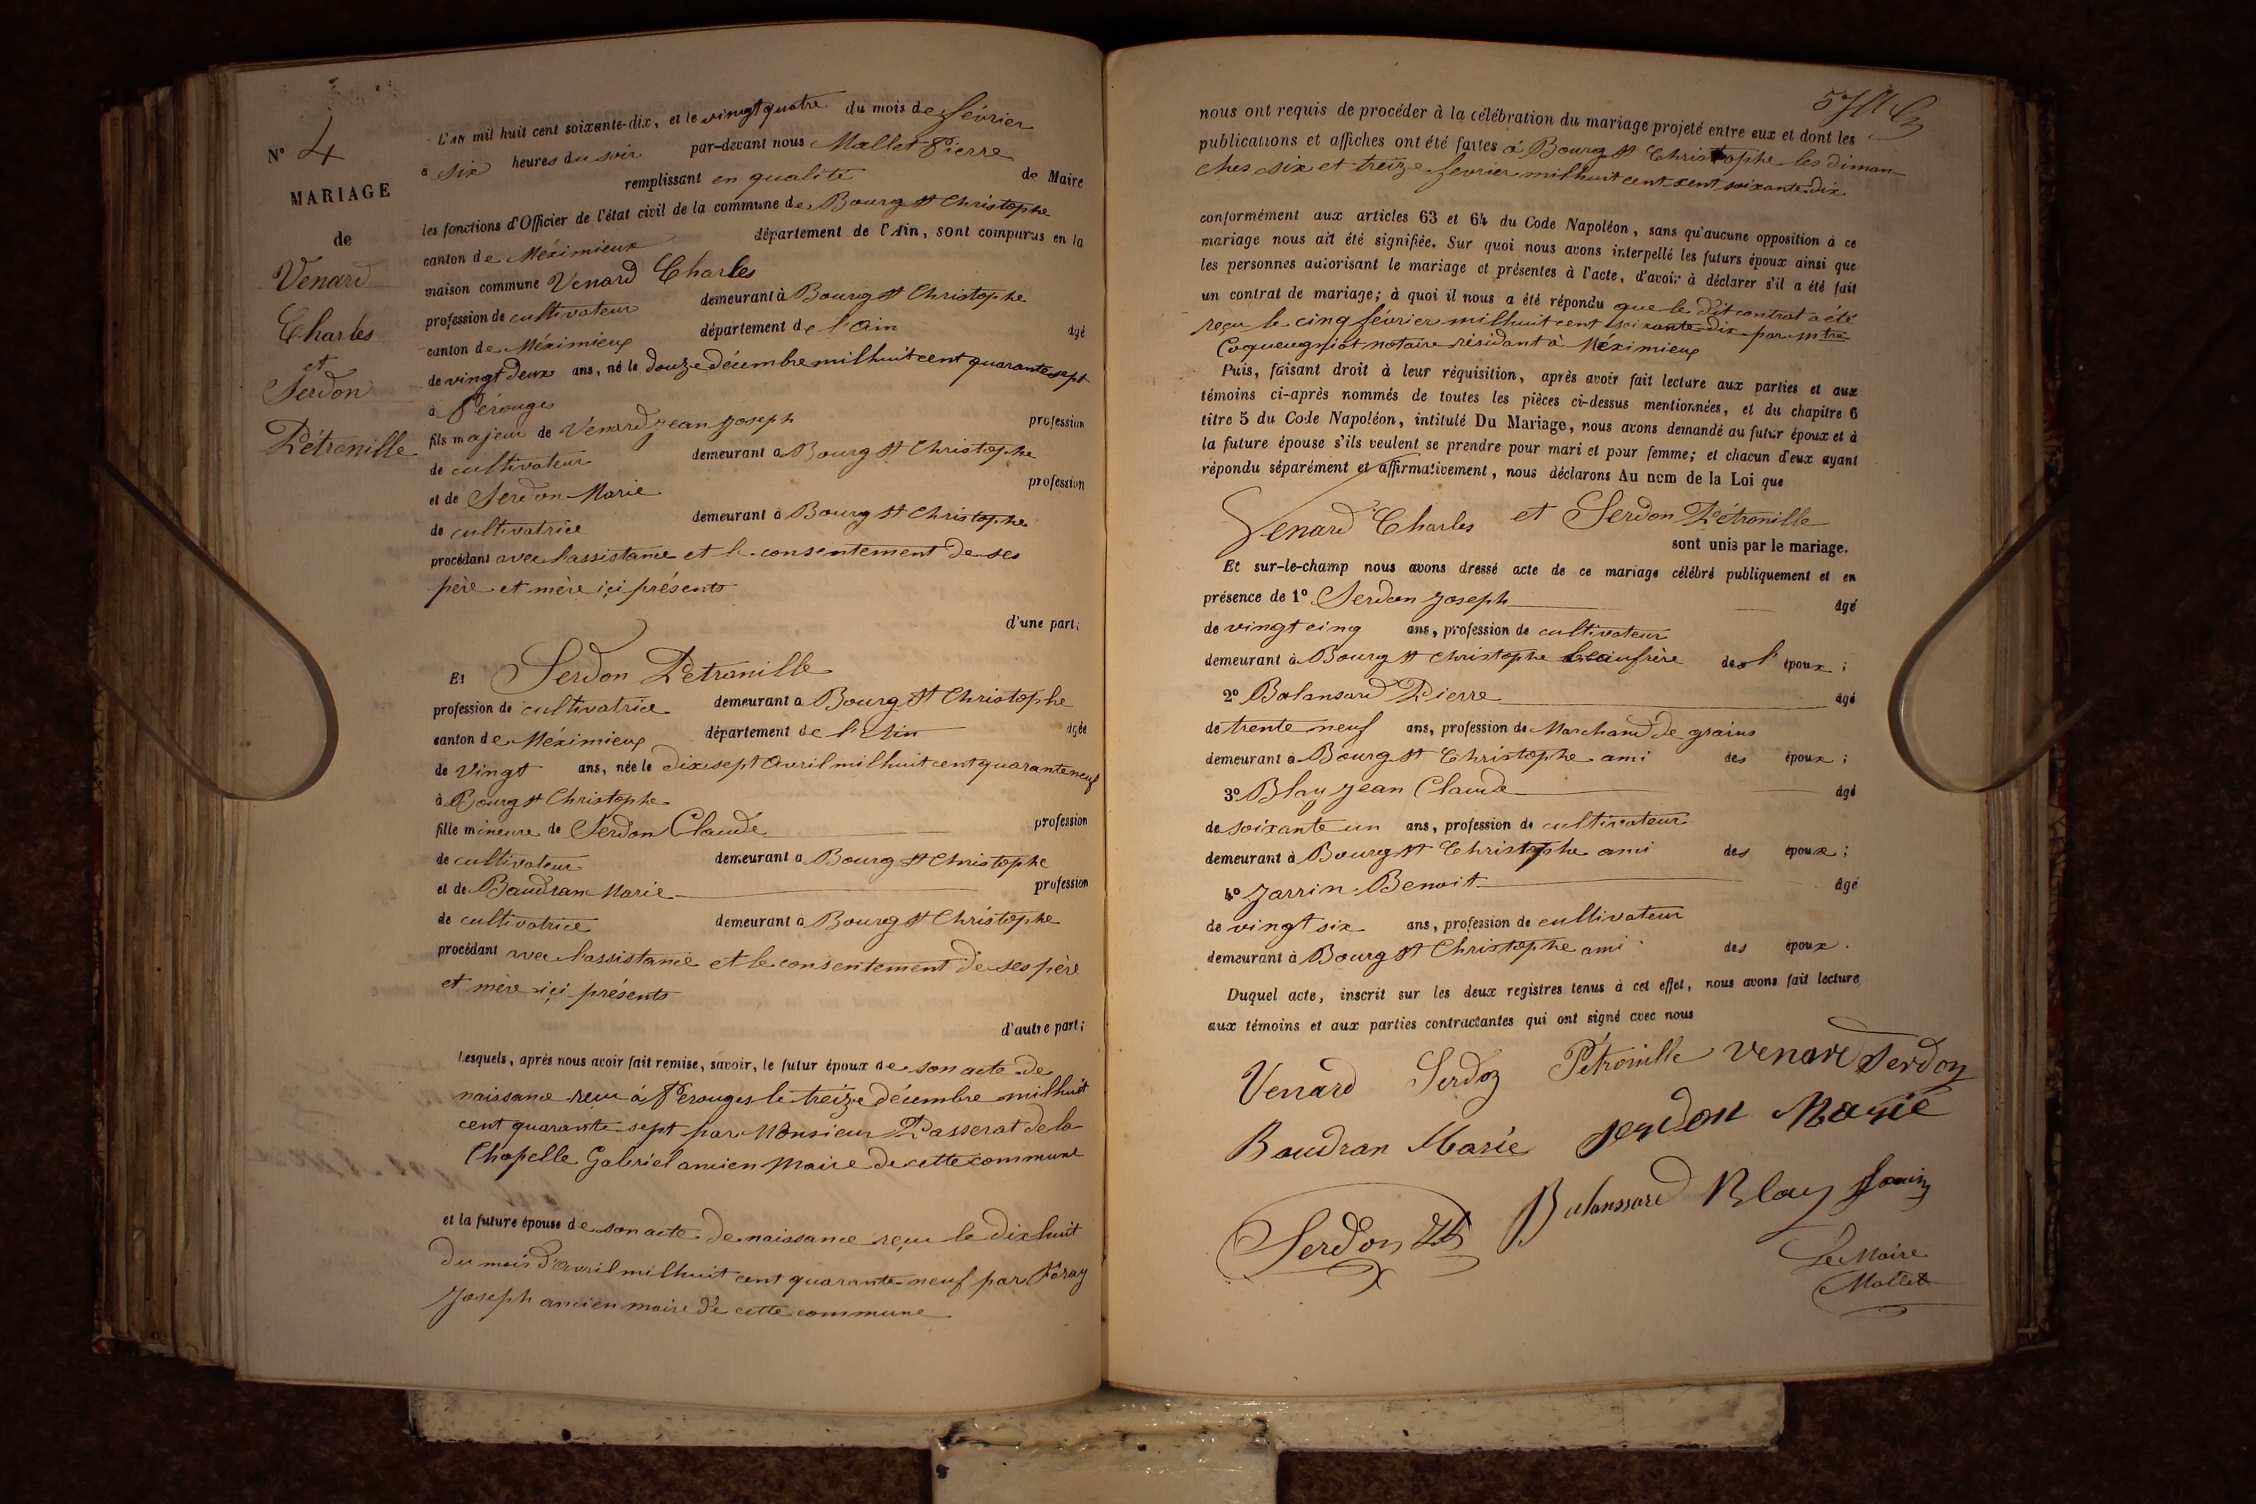 N° 4
MARIAGE
de
Venard
Charles
et
Serdon
Pétronille
L'AN mil huit cent soixante-dix, et le vingt quatre du mois de février
à six heures du soir par-devant nous Mallet Pierre
remplissant en qualité de Maire
les fonctions d'Officier de l'état civil de la commune de Bourg St Christophe
canton de Méximieux département de l'Ain, sont comparus en la
maison commune Venard Charles
profession de cultivateur demeurant à Bourg St Christophe
canton de Méximieux département de l'Ain âgé
de vingt deux ans, né le douze décembre mil huit cent quarante sept
à Pérouges
fils majeur de Vénard Jean Joseph profession
de cultivateur demeurant à Bourg St Christophe
et de Serdon Marie profession
de cultivatrice demeurant à Bourg St Christophe
procédant avec l'assistance et le consentement de ses
père et mère içi présents
d'une part;
Et Serdon Pétronille
profession de cultivatrice demeurant à Bourg St Christophe
canton de Méximieux département de l'Ain âgée
de vingt ans, née le dix sept avril mil huit cent quarante neuf
à Bourg St Christophe
fille mineure de Serdon Claude profession
de cultivateur demeurant à Bourg St Christophe
et de Baudran Marie profession
de cultivatrice demeurant à Bourg St Christophe
procédant avec l'assistance et le consentement de ses père
et mère içi présents
d'autre part;
Lesquels, après nous avoir fait remise, savoir, le futur époux de son acte de
naissance reçu à Pérouges le treize décembre mil huit
cent quarante sept par Monsieur Passerat de la
Chapelle Gabriel ancien Maire de cette commune
et la future épouse de son acte de naissance reçu le dix huit
du mois d'avril mil huit cent quarante neuf par Féray
Joseph ancien maire de cette commune
nous ont requis de procéder à la célébration du mariage projeté entre eux et dont les
publications et affiches ont été faites à Bourg St Christophe les diman-
ches six et treize février mil huit cent cent soixante dix
conformément aux articles 63 et 64 du Code Napoléon, sans qu'aucune opposition à ce
mariage nous ait été signifiée. Sur quoi nous avons interpellé les futurs époux ainsi que
les personnes autorisant le mariage et présentes à l'acte, d'avoir à déclarer s'il a été fait
un contrat de mariage; à quoi il nous a été répondu que le dit contrat a été
reçu le cinq février mil huit cent soixante dix par Mtre
Coqueugniot notaire résidant à Méximieux
Puis, faisant droit à leur réquisition, après avoir fait lecture aux parties et aux
témoins ci-après nommés de toutes les pièces ci-dessus mentionnées, et du chapitre 6
titre 5 du Code Napoléon, intitulé Du Mariage, nous avons demandé au futur époux et à
la future épouse s'ils veulent se prendre pour mari et pour femme; et chacun d'eux ayant
répondu séparément et affirmativement, nous déclarons Au nom de la Loi que
Venard Charles et Serdon Pétronille
sont unis par le mariage.
Et sur-le-champ nous avons dressé acte de ce mariage célébré publiquement et en
présence de 1° Serdon Joseph âgé
de vingt cinq ans, profession de cultivateur
demeurant à Bourg St Christophe beaufrère de l'époux;
2° Balansard Pierre âgé
de trente neuf ans, profession de Marchand de grains
demeurant à Bourg St Christophe ami des époux;
3° Blay Jean Claude âgé
de soixante un ans, profession de cultivateur
demeurant à Bourg St Christophe ami des époux;
4° Jarrin Benoit âgé
de vingt six ans, profession de cultivateur
demeurant à Bourg St Christophe ami des époux.
Duquel acte, inscrit sur les deux registres tenus à cet effet, nous avons fait lecture
aux témoins et aux parties contractantes qui ont signé avec nous
Venard Serdon Pétronille venard Serdon
Baudran Marie serdon Marie
Serdon Balanssard Blay Jarrin
Le Maire
Mallet